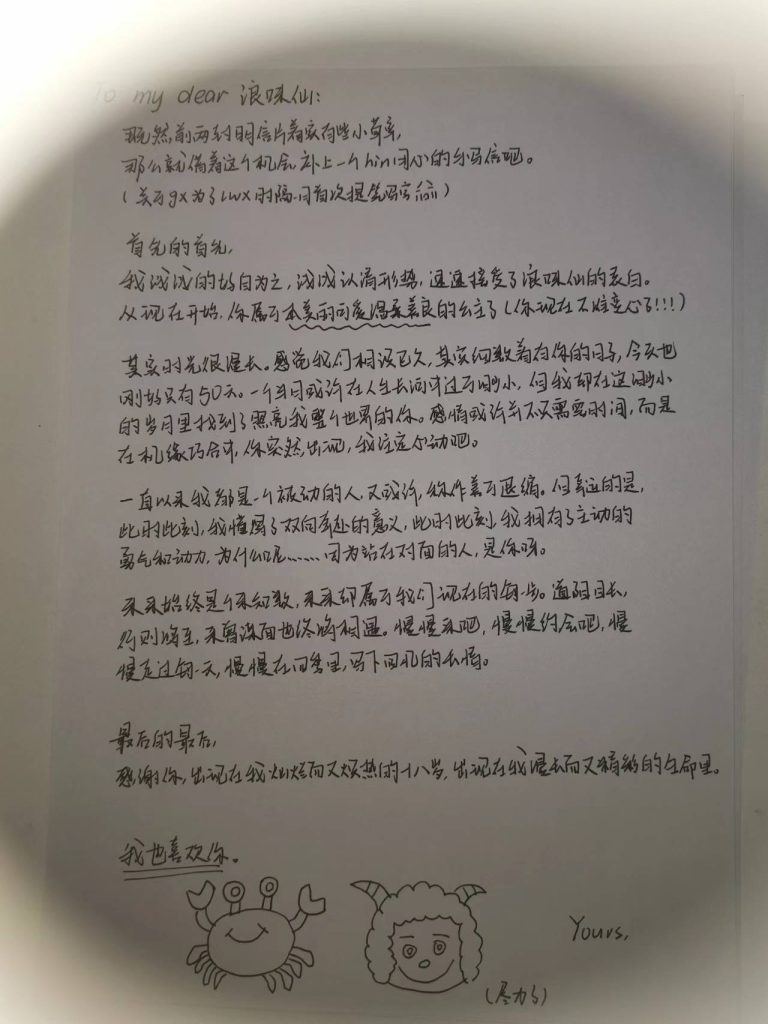 To my dear 浪味仙:
既然前两封明信片着实有些小草率,
那么就借着这个机会,补上一个hin用心的手写信吧。
(关于gx为了lwx时隔 月首次提笔写字
首先的首先,
我浅浅的好自为之,浅浅认清形势,速速接受了浪味仙的表白。
从现在开始,你属于本美丽可爱温柔善良的公主了(你现在不准变心了!!!)
其实时光很漫长。感觉我们相识已久,其实细数着有你的日子,今天也
刚好只有50天。一个半月或许在人生长河中过于渺小,但我却在这渺小
的岁月里找到了照亮我整个世界的你。感情或许并不只需要时间,而是
在机缘巧合中,你突然出现,我注定心动吧。
一直以来我都是一个被动的人,又或许,称作善于退缩。但幸运的是,
此时此刻,我懂得了双向奔赴的意义,此时此刻,我拥有了主动的
勇气和动力,为什么呢……因为站在对面的人,是你呀。
未来始终是个未知数,未来却属于我们现在的每一步。道阻且长,
行则将至,未曾谋面也终将相遇。慢慢来吧,慢慢约会吧,慢
慢走过每一天,慢慢在四季里,写下回忆的长情。
最后的最后,
感谢你,出现在我灿烂而又炽热的十八岁,出现在我漫长而又精彩的生命里。
我也喜欢你。
(尽力了)
Yours,